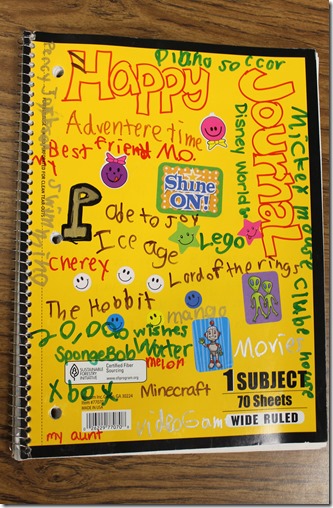 Piano soccor
Happy
Journal
Adventere time
Disney World
Mickex mouse clube house
Best friend Mo.
My
Percy Jackson
Swimming
Shine
ON!
P
ode to joy
Ice age
Lego
cherey
Lord of the rings
The Hobbit
mango
20,000 wishes
SpongeBob
Worter
melon
Movies
SUSTAINABLE
FORESTRY
INITIATIVE
Certified Fiber
Sourcing
www.sfiprogram.org
xbox
Minecraft
1 SUBJECT
70 Sheets
WIDE RULED
MADE IN USA
my aunt
video Gam